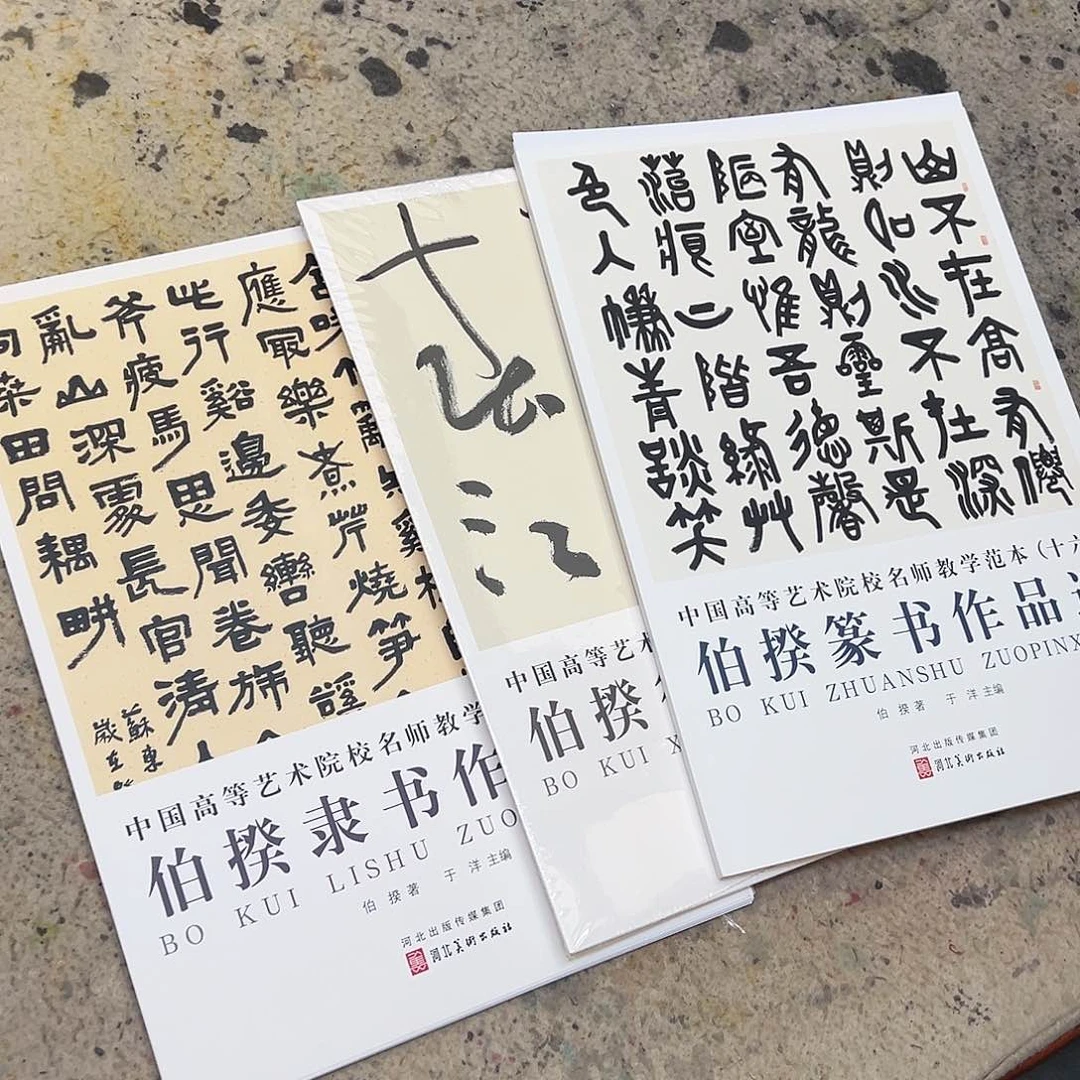 應冣樂煮芹燒筍
此行谿邊委轡聽谿
斧疲馬思聞卷旆
亂山深處長官清人
向桑田問耦耕
蘇東
歲在
中国高等艺术院校名师教学
伯揆隶书作
BO KUI LISHU ZUO
伯揆著 于洋主编
河北出版传媒集团
河北美术出版社
江
中国高等艺术
伯揆
BO KUI X
山不在高有僊
則名水不在深
有龍則靈斯是
陋室惟吾德馨
菭痕上階綠艸
色入簾青談笑
中国高等艺术院校名师教学范本(十六
伯揆篆书作品
BO KUI ZHUANSHU ZUOPINX
伯揆著 于洋主编
河北出版传媒集团
河北美术出版社